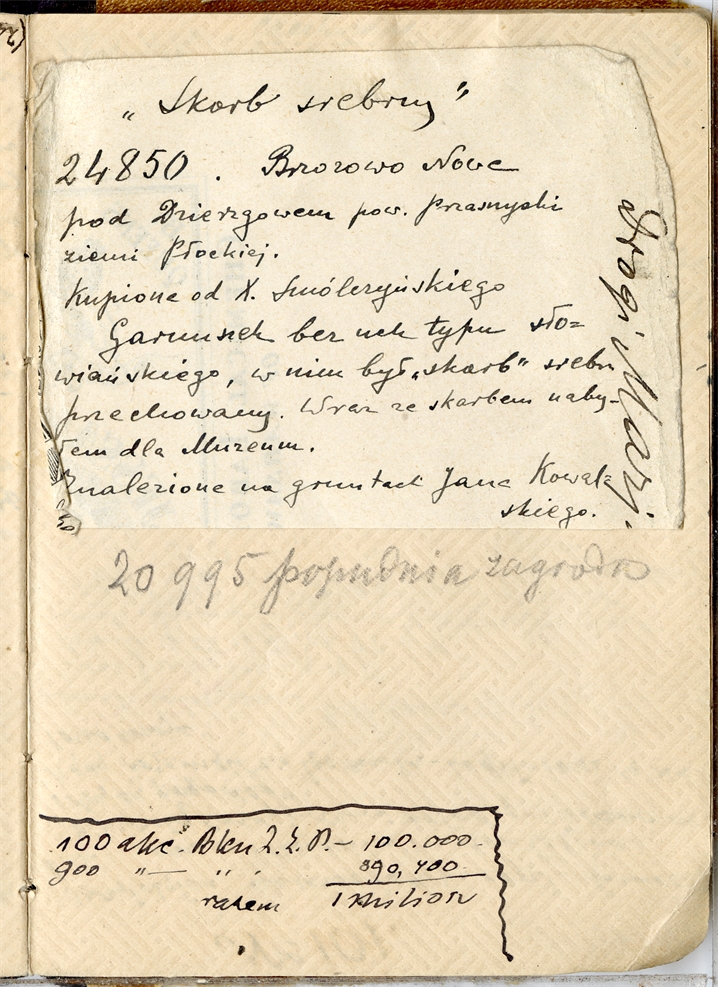 „Skarb srebrny”
24850. Brzozowo Nowe
pod Dzierzgowem pow. Przasnyski
ziemi Płockiej.
Kupione od X. Smólczyńskiego
Garnuszek bez uch typu sło=
wiańskiego, w nim był „skarb” srebrn
przechowany. Wraz ze skarbem naby-
łem dla Muzeum.
Znalezione na gruntach Jana Kowal=
skiego.
Drogi
20 995 popudnia zagroda
100 akc. Bku Z. Z. P. – 100.000
900 "— " 890,400
razem 1 milion